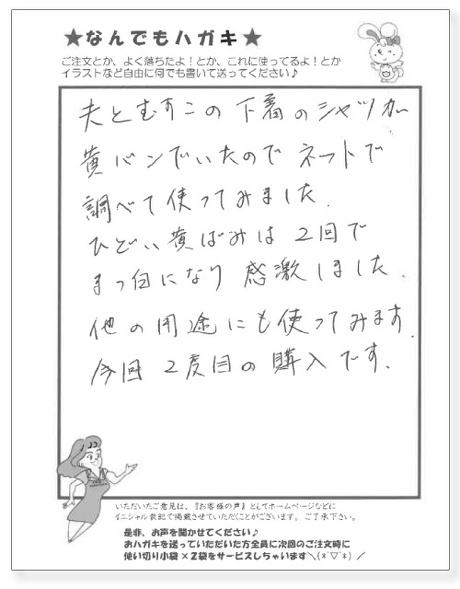 ★なんでもハガキ★
ご注文とか、よく落ちたよ！とか、これに使ってるよ！とか
イラストなど自由に何でも書いて送ってください♪
夫とむすこの下着のシャツが
黄バンでいたのでネットで
調べて使ってみました.
ひどい黄ばみは2回で
まっ白になり感激しました.
他の用途にも使ってみます.
今回2度目の購入です.
いただいたご意見は、『お客様の声』としてホームページなどに
イニシャル表記で掲載させていただくことがございます。ご了承下さい。
是非、お声を聞かせてください♪
おハガキを送っていただいた方全員に次回のご注文時に
使い切り小袋×2袋をサービスしちゃいます＼(*ˇ▽ˇ*)／